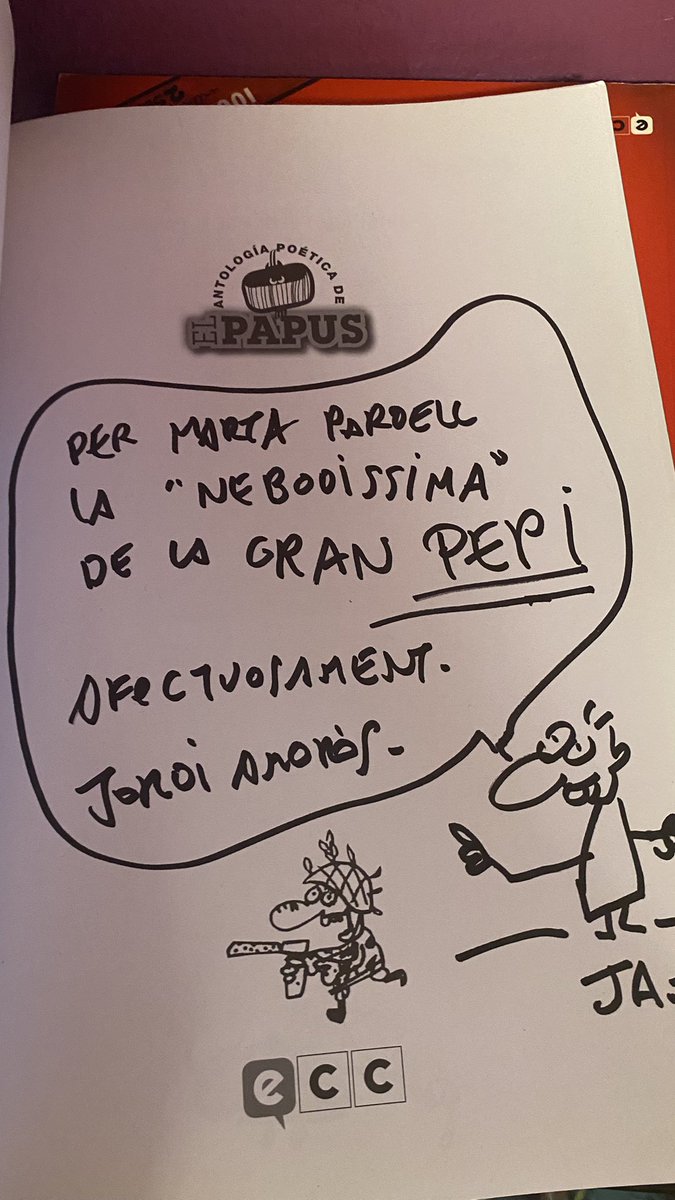 ANTOLOGÍA POÉTICA DE
EL PAPUS
PER MARTA PARDELL
LA "NEBODÍSSIMA"
DE LA GRAN PEPI
AFECTUOSAMENT.
JORDI AMORÒS.
JA
ecc